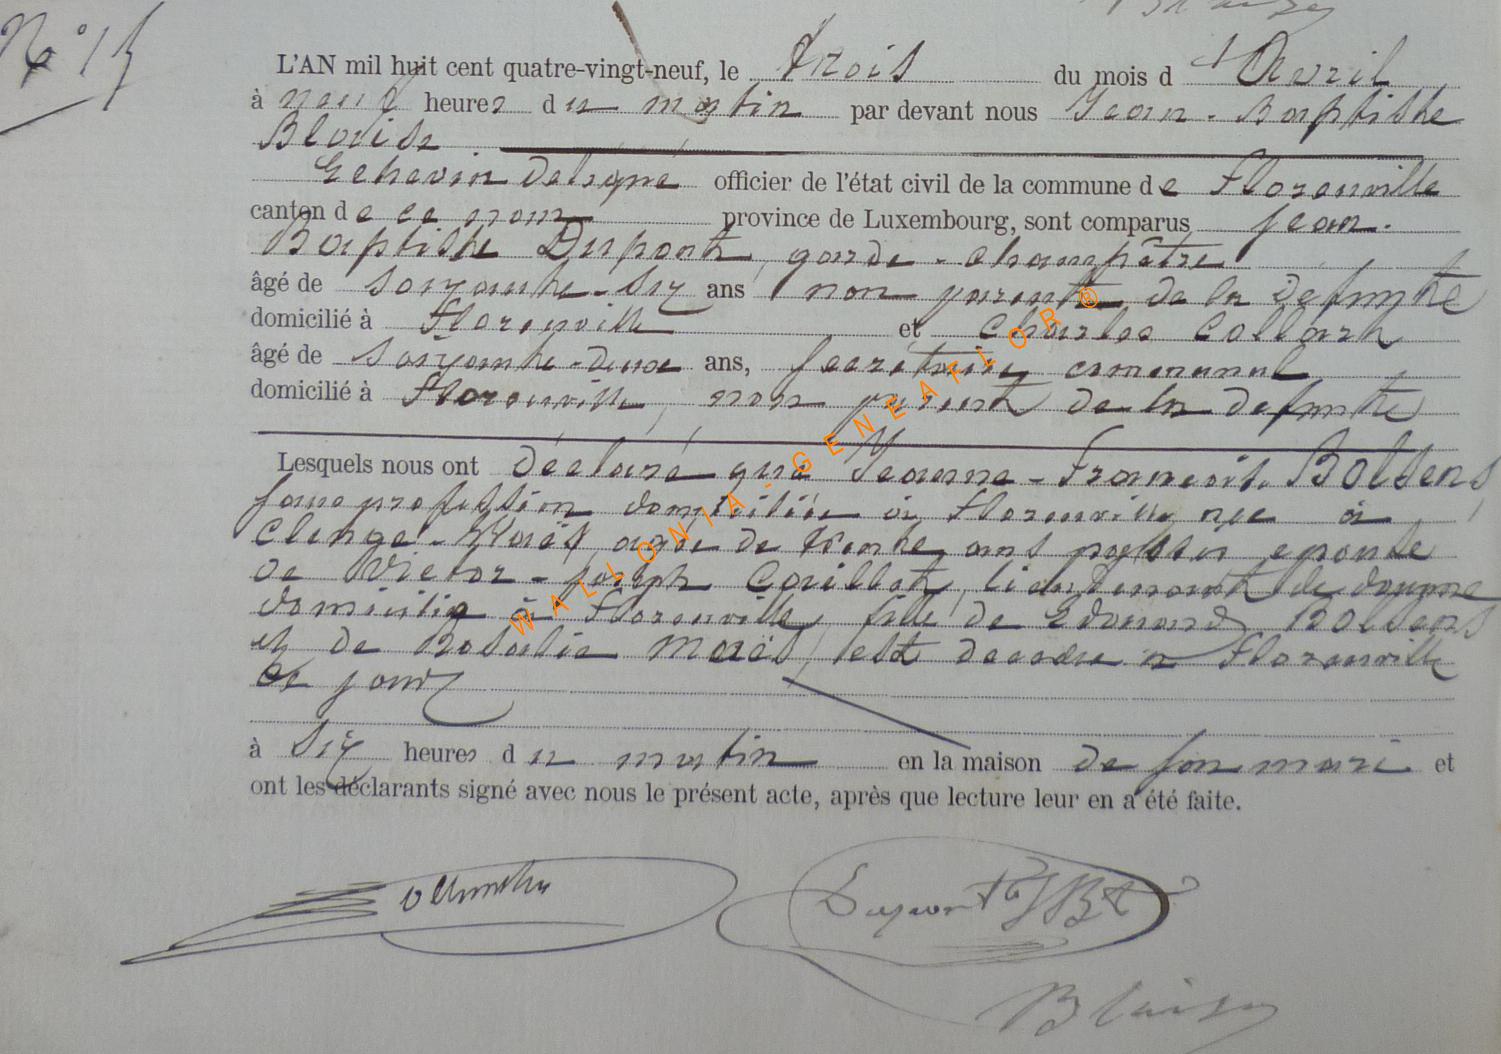 N° 15
L'AN mil huit cent quatre-vingt-neuf, le trois du mois d'Avril
à neuf heures du matin par devant nous Jean-Baptiste
Blaise
Echevin délégué officier de l'état civil de la commune de Florenville
canton de ce nom province de Luxembourg, sont comparus Jean-
Baptiste Dupont, garde-champêtre
âgé de soixante-six ans non parent de la défunte
domicilié à Florenville et Charles Collard
âgé de soixante-deux ans, secrétaire communal
domicilié à Florenville, non parent de la défunte
Lesquels nous ont déclaré que Jeanne-François. Bolsens,
sans profession domiciliée à Florenville née à
âgée de trente ans passés epouse
de Victor-Joseph lieutenant de douane
domicilié à Florenville, fille de Edouard Bolsens
et de Rosalie Maes, est decedee à Florenville
ce jour
à six heures du matin en la maison de son mari et
ont les déclarants signé avec nous le présent acte, après que lecture leur en a été faite.
Dupont JBt
Blaise
WALLONIA-GENEAFLOR®